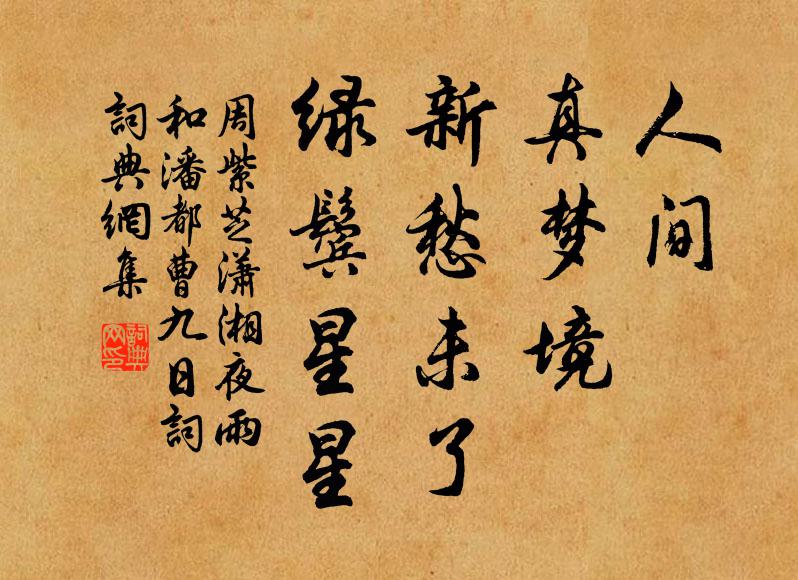 人间
真梦境
新愁未了
绿鬓星星
周紫芝潇湘夜雨
和潘都曹九日詞
詞典網集
詞典网印